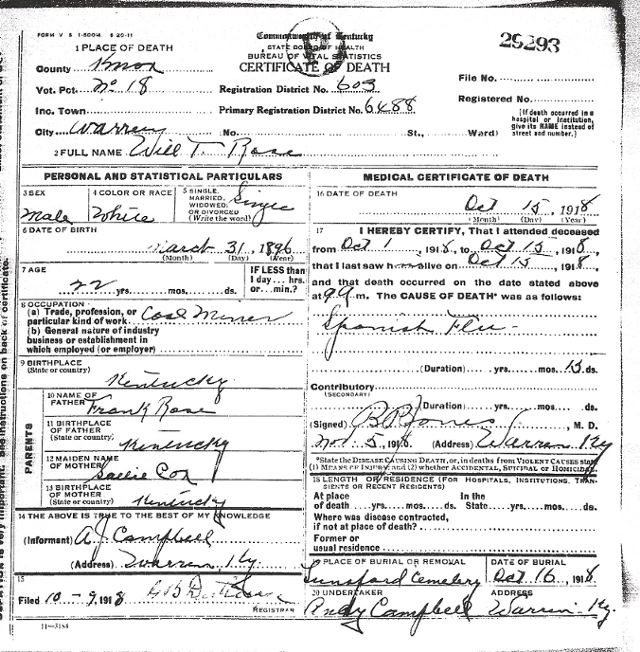 FORM V S 1-500M 8 20-11
Commonwealth of Kentucky
STATE BOARD OF HEALTH
BUREAU OF VITAL STATISTICS
CERTIFICATE OF DEATH
29293
1 PLACE OF DEATH
County Knox
Vot. Pct. No 18
Inc. Town
City Warren No. St., Ward)
Registration District No. 603
Primary Registration District No. 6488
File No.
Registered No.
(If death occurred in a
hospital or institution,
give its NAME instead of
street and number.)
2 FULL NAME Will T. Rose
PERSONAL AND STATISTICAL PARTICULARS
3 SEX
Male
4 COLOR OR RACE
White
5 SINGLE,
MARRIED,
WIDOWED,
OR DIVORCED
(Write the word)
Single
6 DATE OF BIRTH
March 31, 1896
(Month) (Day) (Year)
7 AGE
22 yrs. mos. ds.
IF LESS than
1 day... hrs.
or... min.?
8 OCCUPATION
(a) Trade, profession, or
particular kind of work Coal Miner
(b) General nature of industry
business or establishment in
which employed (or employer)
9 BIRTHPLACE
(State or country)
Kentucky
PARENTS
10 NAME OF
FATHER
Frank Rose
11 BIRTHPLACE
OF FATHER
(State or country)
Kentucky
12 MAIDEN NAME
OF MOTHER
Sallie Cox
13 BIRTHPLACE
OF MOTHER
(State or country)
Kentucky
14 THE ABOVE IS TRUE TO THE BEST OF MY KNOWLEDGE
(Informant) A J Campbell
(Address) Warren, Ky.
15
Filed 10-9 1918
REGISTRAR
11-3184
MEDICAL CERTIFICATE OF DEATH
16 DATE OF DEATH
Oct 15, 1918
(Month) (Day) (Year)
17 I HEREBY CERTIFY, That I attended deceased
from Oct 1, 1918, to Oct 15, 1918,
that I last saw him alive on Oct 15, 1918,
and that death occurred on the date stated above
at 9 a m. The CAUSE OF DEATH* was as follows:
Spanish Flu
(Duration) yrs. mos. 15 ds.
Contributory
(SECONDARY)
(Duration) yrs. mos. ds.
(Signed) B P Jones, M. D.
Nov. 5, 1918 (Address) Warren Ky
*State the DISEASE CAUSING DEATH, or, in deaths from VIOLENT CAUSES state
(1) MEANS OF INJURY; and (2) whether ACCIDENTAL, SUICIDAL or HOMICIDAL.
18 LENGTH OF RESIDENCE (FOR HOSPITALS, INSTITUTIONS, TRANSIENTS OR RECENT RESIDENTS)
At place
of death yrs. mos. ds.
In the
State yrs. mos. ds.
Where was disease contracted,
if not at place of death?
Former or
usual residence
19 PLACE OF BURIAL OR REMOVAL
Lunsford Cemetery
DATE OF BURIAL
Oct 16, 1918
20 UNDERTAKER
Andy Campbell
ADDRESS
Warren Ky.